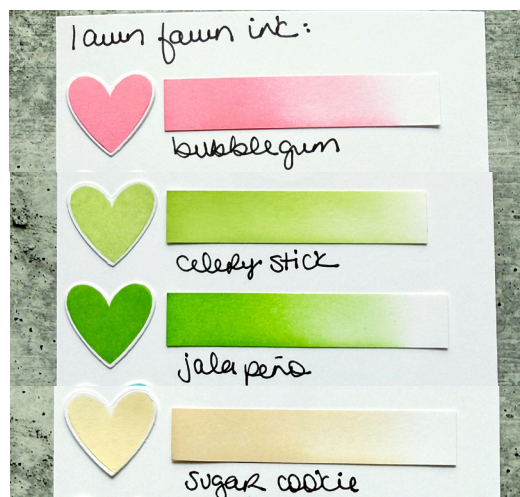 lawn fawn ink:
bubblegum
celery stick
jalapeño
sugar cookie